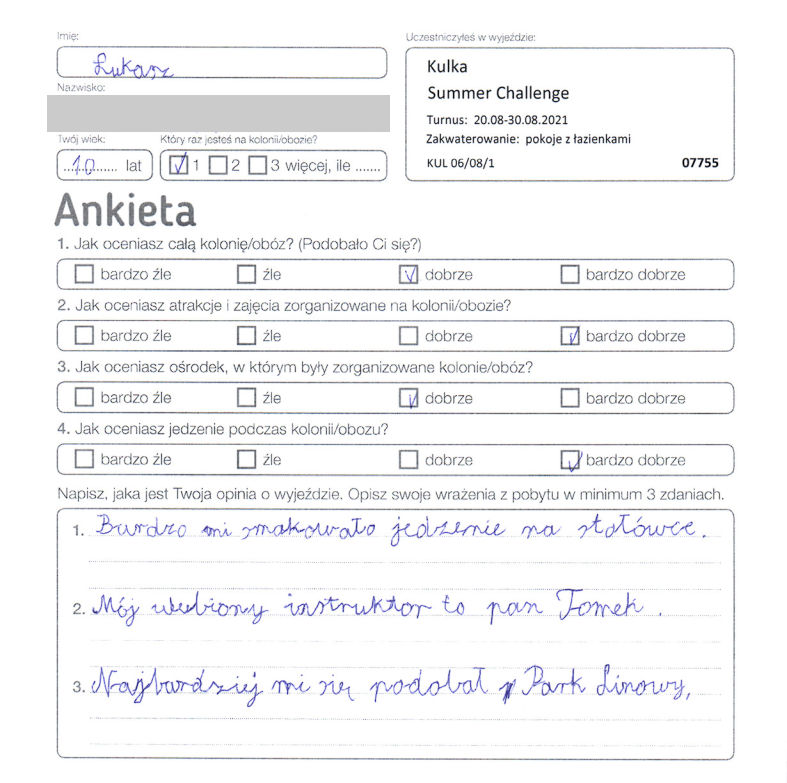 Imię:
Łukasz
Nazwisko:
Twój wiek:
10 lat
Który raz jesteś na kolonii/obozie?
1 2 3 więcej, ile .......
Uczestniczyłeś w wyjeździe:
Kulka
Summer Challenge
Turnus: 20.08-30.08.2021
Zakwaterowanie: pokoje z łazienkami
KUL 06/08/1 07755
Ankieta
1. Jak oceniasz całą kolonię/obóz? (Podobało Ci się?)
bardzo źle źle dobrze bardzo dobrze
2. Jak oceniasz atrakcje i zajęcia zorganizowane na kolonii/obozie?
bardzo źle źle dobrze bardzo dobrze
3. Jak oceniasz ośrodek, w którym były zorganizowane kolonie/obóz?
bardzo źle źle dobrze bardzo dobrze
4. Jak oceniasz jedzenie podczas kolonii/obozu?
bardzo źle źle dobrze bardzo dobrze
Napisz, jaka jest Twoja opinia o wyjeździe. Opisz swoje wrażenia z pobytu w minimum 3 zdaniach.
1. Bardzo mi smakowało jedzenie na stołówce.
2. Mój ulubiony instruktor to pan Tomek.
3. Najbardziej mi się podobał Park Linowy,